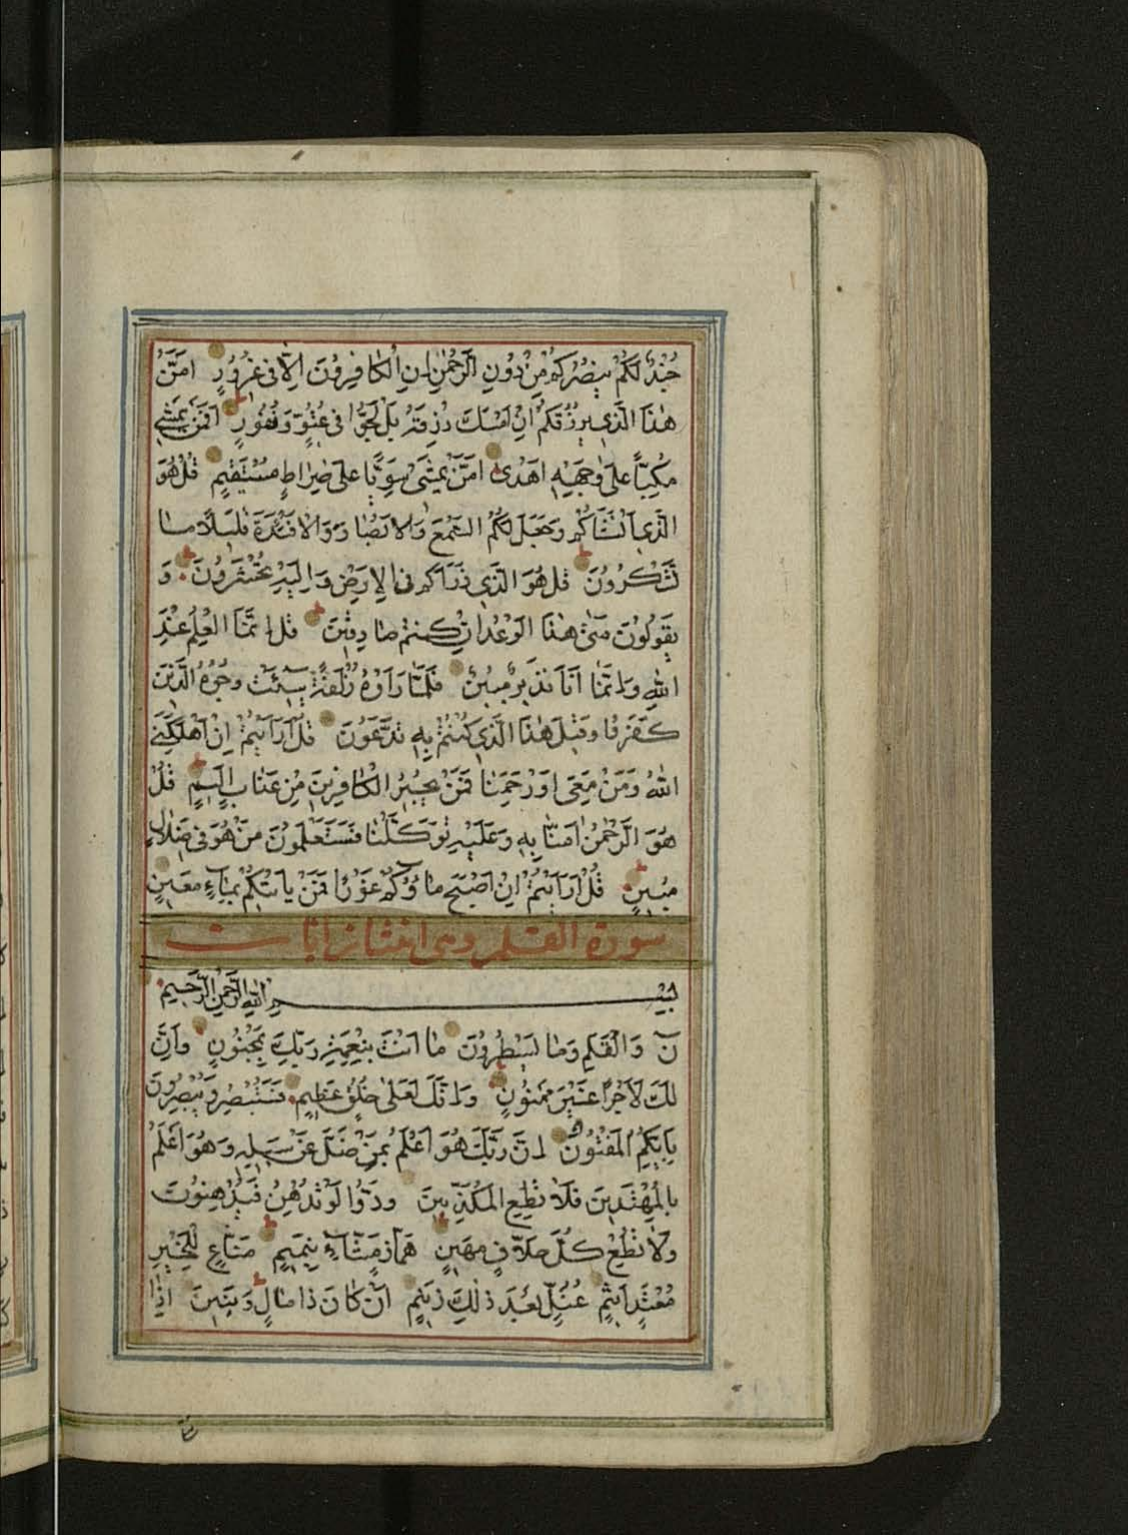 جُنْدٌ لَكُمْ يَنْصُرُكُمْ مِنْ دُونِ الرَّحْمٰنِ اِنِ الْكَافِرُونَ اِلَّا فِى غُرُورٍ اَمَّنْ
هٰذَا الَّذِى يَرْزُقُكُمْ اِنْ اَمْسَكَ رِزْقَهُ بَلْ لَجُّوا فِى عُتُوٍّ وَنُفُورٍ اَفَمَنْ يَمْشِى
مُكِبًّا عَلٰى وَجْهِهِ اَهْدٰى اَمَّنْ يَمْشِى سَوِيًّا عَلٰى صِرَاطٍ مُسْتَقِيمٍ قُلْ هُوَ
الَّذِى اَنْشَاَكُمْ وَجَعَلَ لَكُمُ السَّمْعَ وَالْاَبْصَارَ وَالْاَفْئِدَةَ قَلِيلًا مَا
تَشْكُرُونَ قُلْ هُوَ الَّذِى ذَرَاَكُمْ فِى الْاَرْضِ وَاِلَيْهِ تُحْشَرُونَ وَ
يَقُولُونَ مَتٰى هٰذَا الْوَعْدُ اِنْ كُنْتُمْ صَادِقِينَ قُلْ اِنَّمَا الْعِلْمُ عِنْدَ
اللّٰهِ وَاِنَّمَا اَنَا نَذِيرٌ مُبِينٌ فَلَمَّا رَاَوْهُ زُلْفَةً سِيٓئَتْ وُجُوهُ الَّذِينَ
كَفَرُوا وَقِيلَ هٰذَا الَّذِى كُنْتُمْ بِهِ تَدَّعُونَ قُلْ اَرَاَيْتُمْ اِنْ اَهْلَكَنِىَ
اللّٰهُ وَمَنْ مَعِىَ اَوْ رَحِمَنَا فَمَنْ يُجِيرُ الْكَافِرِينَ مِنْ عَذَابٍ اَلِيمٍ قُلْ
هُوَ الرَّحْمٰنُ اٰمَنَّا بِهِ وَعَلَيْهِ تَوَكَّلْنَا فَسَتَعْلَمُونَ مَنْ هُوَ فِى ضَلَالٍ
مُبِينٍ قُلْ اَرَاَيْتُمْ اِنْ اَصْبَحَ مَاؤُكُمْ غَوْرًا فَمَنْ يَاْتِيكُمْ بِمَاءٍ مَعِينٍ
سورة القلم وهى اثنتا آيات
بِسْمِ اللّٰهِ الرَّحْمٰنِ الرَّحِيمِ
نٓ وَالْقَلَمِ وَمَا يَسْطُرُونَ مَا اَنْتَ بِنِعْمَةِ رَبِّكَ بِمَجْنُونٍ وَاِنَّ
لَكَ لَاَجْرًا غَيْرَ مَمْنُونٍ وَاِنَّكَ لَعَلٰى خُلُقٍ عَظِيمٍ فَسَتُبْصِرُ وَيُبْصِرُونَ
بِاَيِّكُمُ الْمَفْتُونُ اِنَّ رَبَّكَ هُوَ اَعْلَمُ بِمَنْ ضَلَّ عَنْ سَبِيلِهِ وَهُوَ اَعْلَمُ
بِالْمُهْتَدِينَ فَلَا تُطِعِ الْمُكَذِّبِينَ وَدُّوا لَوْ تُدْهِنُ فَيُدْهِنُونَ
وَلَا تُطِعْ كُلَّ حَلَّافٍ مَهِينٍ هَمَّازٍ مَشَّاءٍ بِنَمِيمٍ مَنَّاعٍ لِلْخَيْرِ
مُعْتَدٍ اَثِيمٍ عُتُلٍّ بَعْدَ ذٰلِكَ زَنِيمٍ اَنْ كَانَ ذَا مَالٍ وَبَنِينَ اِذَا